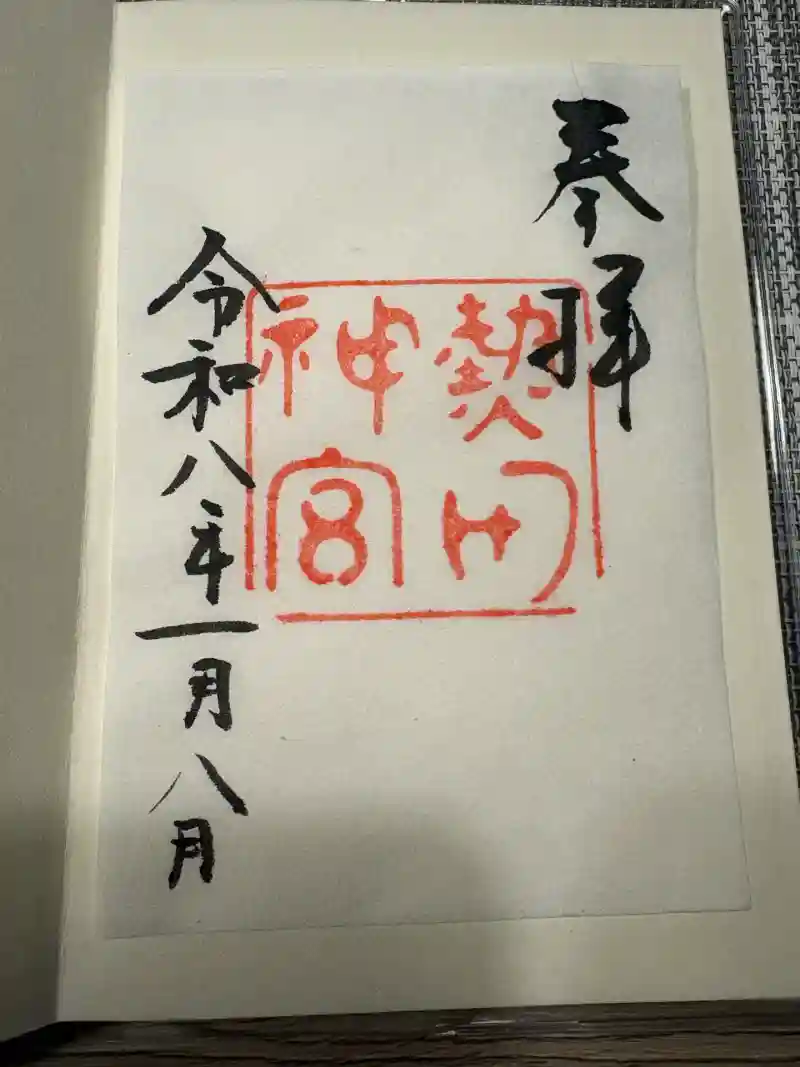 奉拝
熱田
神宮
令和八年一月八月